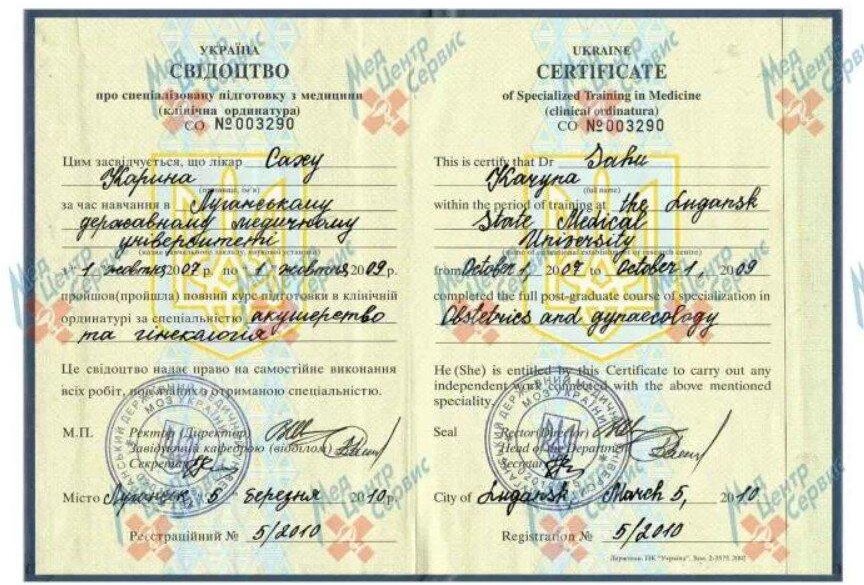 УКРАЇНА
СВІДОЦТВО
про спеціалізовану підготовку з медицини
(клінічна ординатура)
СО №003290
Цим засвідчується, що лікар Саху
Карина
(прізвище, ім'я)
за час навчання в Луганському
державному медичному
університеті
(назва навчального закладу, наукової установи)
з " 1 " жовтня 2007 р. по " 1 " жовтня 2009 р.
пройшов(пройшла) повний курс підготовки в клінічній
ординатурі за спеціальністю акушерство
та гінекологія
Це свідоцтво надає право на самостійне виконання
всіх робіт, пов'язаних з отриманою спеціальністю.
М.П. Ректор (Директор)
Завідуючий кафедрою (відділом)
Секретар
Місто Луганськ " 5 " березня 2010 р.
Реєстраційний № 5/2010
UKRAINE
CERTIFICATE
of Specialized Training in Medicine
(clinical ordinatura)
СО №003290
This is certify that Dr Sahu
Karyna
(full name)
within the period of training at the Lugansk
State Medical
University
(name of educational establishment or research centre)
from October 1, 2007 to October 1, 2009
completed the full post-graduate course of specialization in
Obstetrics and gynaecology
He (She) is entitled by this Certificate to carry out any
independent work connected with the above mentioned
speciality.
Seal Rector (Director)
Head of the Department
Secretary
City of Lugansk, March 5, 2010
Registration № 5/2010
Мед Центр Сервис